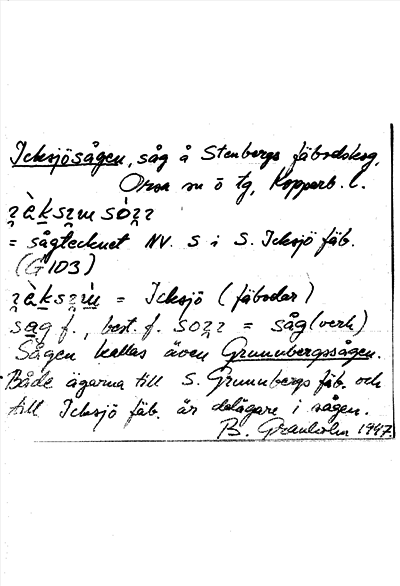 Icksjösågen, såg å Stenbergs fäbodskog,
Orsa sn ö tg, Kopparb. l.
= sågtecknet NV. S i S. Icksjö fäb.
(G 103)
= Icksjö (fäbodar)
f., best. f. = såg (verk)
Sågen kallas även Grunnbergssågen.
Både ägarna till S. Grunnbergs fäb. och
till Icksjö fäb. är delägare i sågen.
B. Granholm 1947.